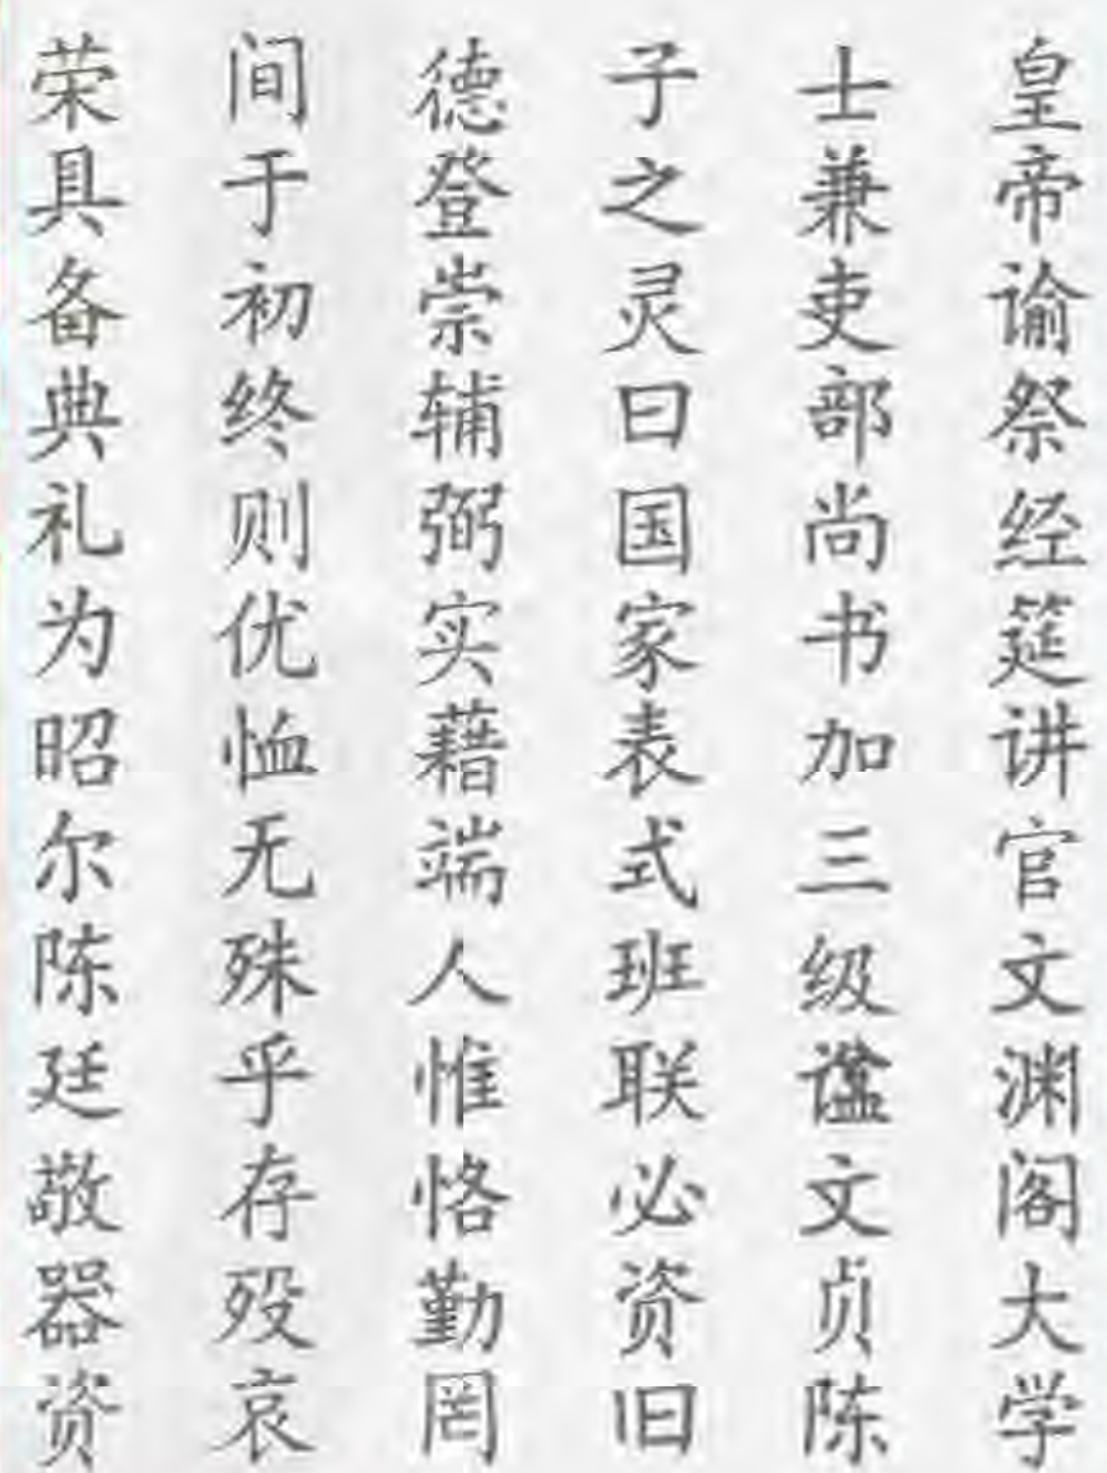 皇帝谕祭经筵讲官文渊阁大学
士兼吏部尚书加三级谥文贞陈
子之灵曰国家表式班联必资旧
德登崇辅弼实藉端人惟恪勤罔
间于初终则优恤无殊乎存殁哀
荣具备典礼为昭尔陈廷敬器资